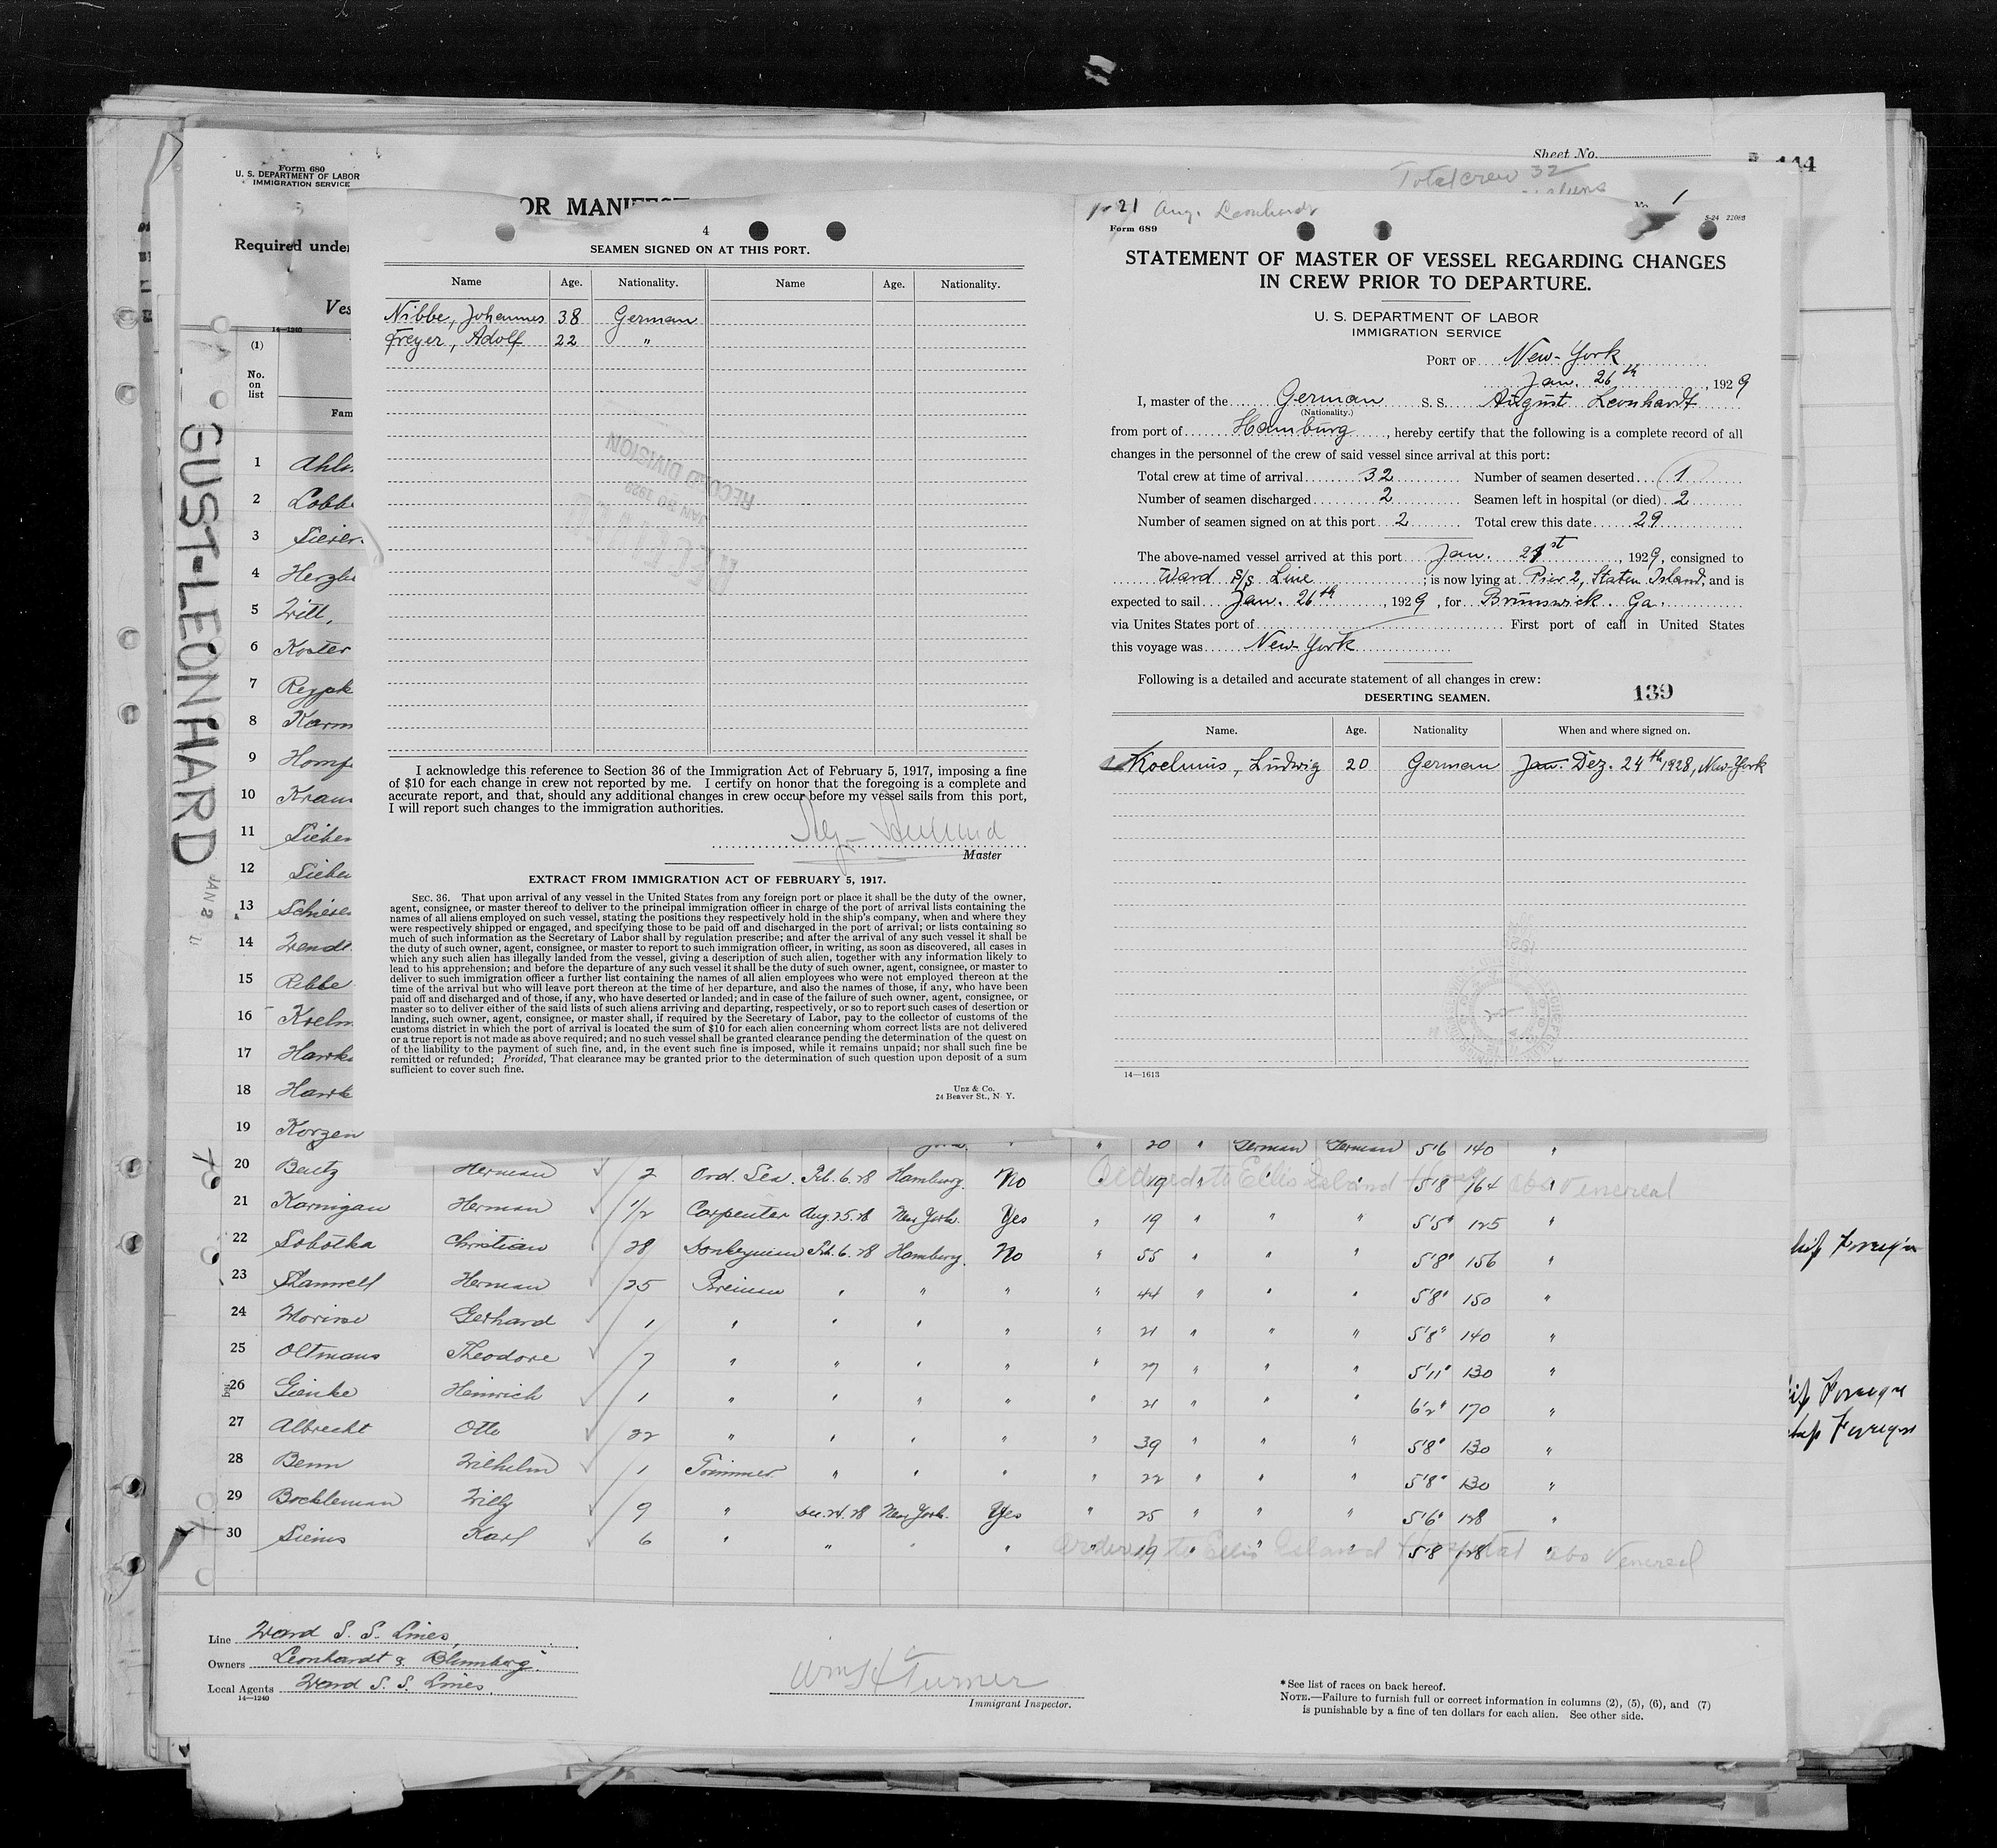 Form 680
U. S. DEPARTMENT OF LABOR
IMMIGRATION SERVICE
Sheet No.
144
Total crew 32
OR MANIFEST
Required under
Ves
14—1240
(1)
No.
on
list
Fam
GUST-LEONHARD
4
SEAMEN SIGNED ON AT THIS PORT.
Name Age. Nationality. Name Age. Nationality.
Nibbe, Johannes 38 German
Freyer, Adolf 22 "
RECEIVED
JAN 30 1929
RECORD DIVISION
I acknowledge this reference to Section 36 of the Immigration Act of February 5, 1917, imposing a fine
of $10 for each change in crew not reported by me. I certify on honor that the foregoing is a complete and
accurate report, and that, should any additional changes in crew occur before my vessel sails from this port,
I will report such changes to the immigration authorities.
Master
EXTRACT FROM IMMIGRATION ACT OF FEBRUARY 5, 1917.
SEC. 36. That upon arrival of any vessel in the United States from any foreign port or place it shall be the duty of the owner,
agent, consignee, or master thereof to deliver to the principal immigration officer in charge of the port of arrival lists containing the
names of all aliens employed on such vessel, stating the positions they respectively hold in the ship's company, when and where they
were respectively shipped or engaged, and specifying those to be paid off and discharged in the port of arrival; or lists containing so
much of such information as the Secretary of Labor shall by regulation prescribe; and after the arrival of any such vessel it shall be
the duty of such owner, agent, consignee, or master to report to such immigration officer, in writing, as soon as discovered, all cases in
which any such alien has illegally landed from the vessel, giving a description of such alien, together with any information likely to
lead to his apprehension; and before the departure of any such vessel it shall be the duty of such owner, agent, consignee, or master to
deliver to such immigration officer a further list containing the names of all alien employees who were not employed thereon at the
time of the arrival but who will leave port thereon at the time of her departure, and also the names of those, if any, who have been
paid off and discharged and of those, if any, who have deserted or landed; and in case of the failure of such owner, agent, consignee, or
master so to deliver either of the said lists of such aliens arriving and departing, respectively, or so to report such cases of desertion or
landing, such owner, agent, consignee, or master shall, if required by the Secretary of Labor, pay to the collector of customs of the
customs district in which the port of arrival is located the sum of $10 for each alien concerning whom correct lists are not delivered
or a true report is not made as above required; and no such vessel shall be granted clearance pending the determination of the quest on
of the liability to the payment of such fine, and, in the event such fine is imposed, while it remains unpaid; nor shall such fine be
remitted or refunded; Provided, That clearance may be granted prior to the determination of such question upon deposit of a sum
sufficient to cover such fine.
Unz & Co.
24 Beaver St., N Y.
1-21 Aug. Leonhardt
1
Form 689
5-24 22068
STATEMENT OF MASTER OF VESSEL REGARDING CHANGES
IN CREW PRIOR TO DEPARTURE.
U. S. DEPARTMENT OF LABOR
IMMIGRATION SERVICE
PORT OF New-York
Jan. 26th, 1929
I, master of the German S. S. August Leonhardt
(Nationality.)
from port of Hamburg, hereby certify that the following is a complete record of all
changes in the personnel of the crew of said vessel since arrival at this port:
Total crew at time of arrival 32 Number of seamen deserted 1
Number of seamen discharged 2 Seamen left in hospital (or died) 2
Number of seamen signed on at this port 2 Total crew this date 29
The above-named vessel arrived at this port Jan. 21st, 1929, consigned to
Ward S/S Line; is now lying at Pier 2, Staten Island, and is
expected to sail Jan. 26th, 1929, for Brunswick. Ga.
via Unites States port of First port of call in United States
this voyage was New-York
Following is a detailed and accurate statement of all changes in crew:
DESERTING SEAMEN. 139
Name. Age. Nationality When and where signed on.
Koelmus, Ludwig 20 German Jan. Dez. 24th 1928, New-York
14—1613
1
2 Lobbe
3
4
5 Witt,
6 Koster
7
8
9
10
11
12
13
14
15 Ribbe
16
17
18
19 Korzen 20 " German German 5'6 140 "
20 Bautz Herman 2 Ord. Sea. Feb. 6. 28 Hamburg. No " 19 " " " 5'8 164 "
Ordered to Ellis Island Hosp abo Venereal
21 Karnigan Herman 1/2 Carpenter Aug. 25. 28 New York. Yes " 19 " " " 5'5" 125 "
22 Sobotka Christian 28 Donkeyman Feb. 6. 28 Hamburg. No " 55 " " " 5'8" 156 "
23 Herman 25 Fireman " " " " 44 " " " 5'8" 150 "
24 Gerhard 1 " " " " " 21 " " " 5'8" 140 "
25 Oltmans Theodore 7 " " " " " 27 " " " 5'11" 130 "
26 Gienke Heinrich 1 " " " " " 21 " " " 6'2" 170 "
27 Albrecht Otto 22 " " " " " 39 " " " 5'8" 130 "
28 Benn Wilhelm 1 Trimmer " " " " 22 " " " 5'8" 130 "
29 Bockleman Willy 9 " Dec. 24. 28 New York. Yes " 25 " " " 5'6" 128 "
30 Siems Karl 6 " " " " " 19 " " " 5'8 128 "
Ordered to Ellis Island Hospital abo Venereal
Foreign
Foreign
Foreign
Line Ward S. S. Lines,
Owners Leonhardt & Blumberg.
Local Agents Ward S. S. Lines.
14—1240
Wm H Turner
Immigrant Inspector.
* See list of races on back hereof.
NOTE.—Failure to furnish full or correct information in columns (2), (5), (6), and (7)
is punishable by a fine of ten dollars for each alien. See other side.